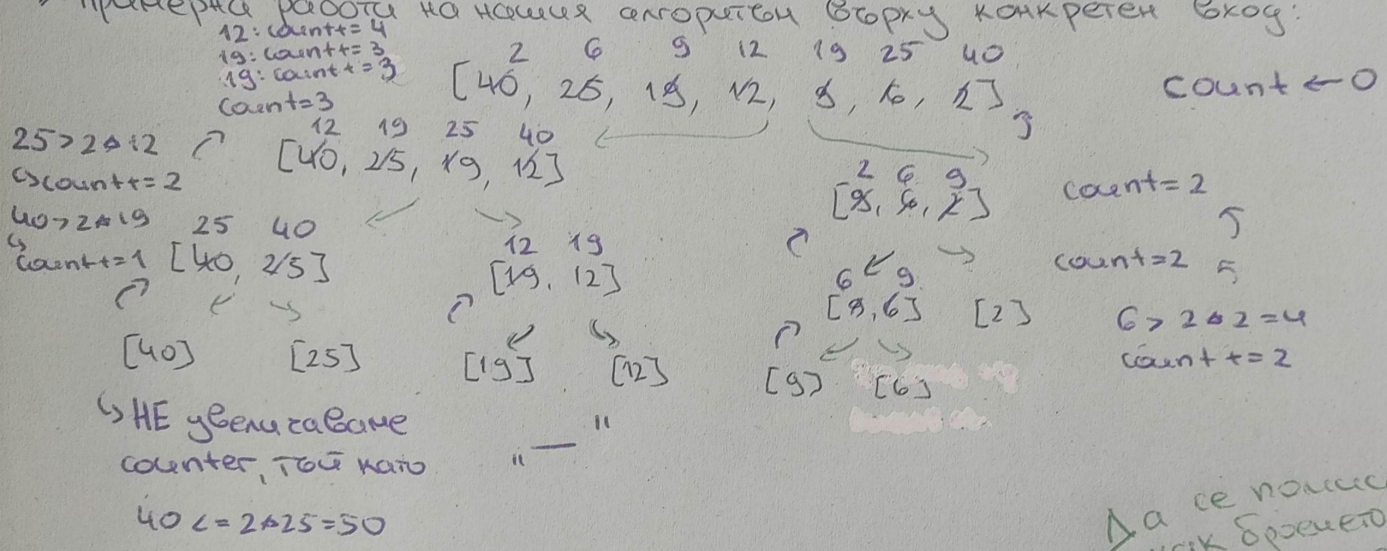 Примерна работа на нашия алгоритъм върху конкретен вход:
12: count+= 4
19: count+= 3
19: count+= 3
count=3
2 6 9 12 19 25 40
[40, 25, 19, 12, 9, 6, 2]
count ← 0
25>2*12
↳count+= 2
12 19 25 40
[40, 25, 19, 12]
2 6 9
[9, 6, 2]
count=2
40>2*19
↳count+=1
25 40
[40, 25]
12 19
[19, 12]
6 9
[9,6] [2]
count=2
6> 2*2=4
count+=2
[40] [25] [19] [12] [9] [6]
↳ НЕ увеличаваме
counter, тъй като
40<=2*25=50
"—"
Да се